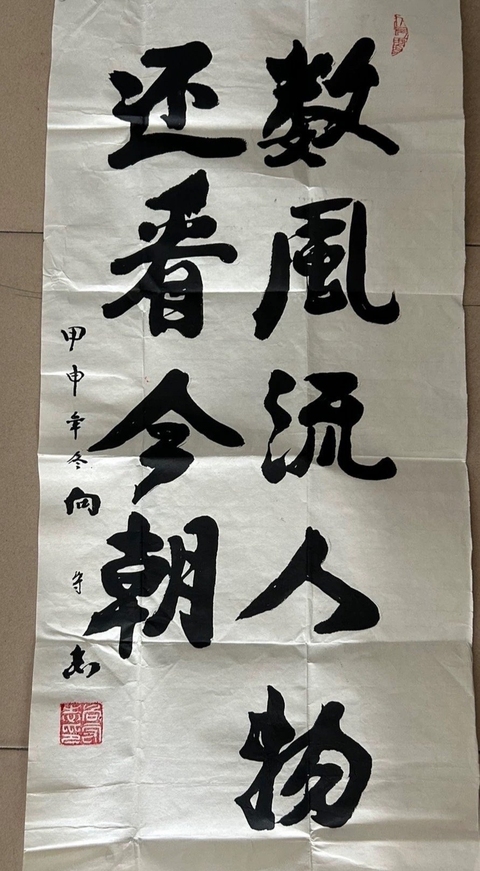 数風流人物
还看今朝
甲申年冬向守志